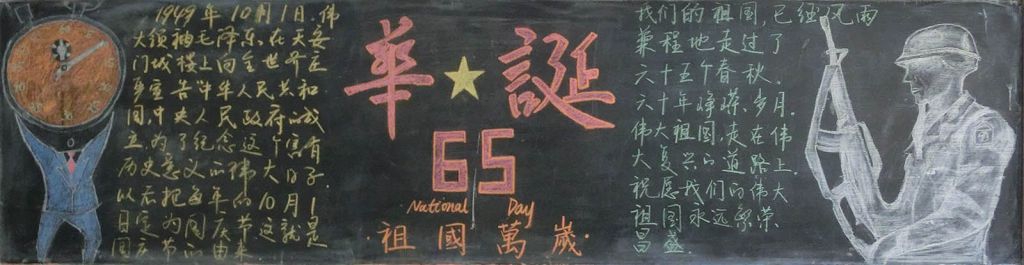 1949年10月1日.伟
大领袖毛泽东.在天安
门城楼上向全世界庄
严宣告中华人民共和
国,中央人民政府的成
立.为了纪念这个富有
历史意义的伟大日子.
以后把每年的10月1
日定为国庆节这就是
国庆节的由来.
華★誕
65
National Day
·祖國萬歲·
我们的祖国,已经风雨
兼程地走过了
六十五个春秋.
六十年峥嵘岁月.
伟大祖国,走在伟
大复兴的道路上
祝愿我们的伟大
祖国永远繁荣
昌盛.